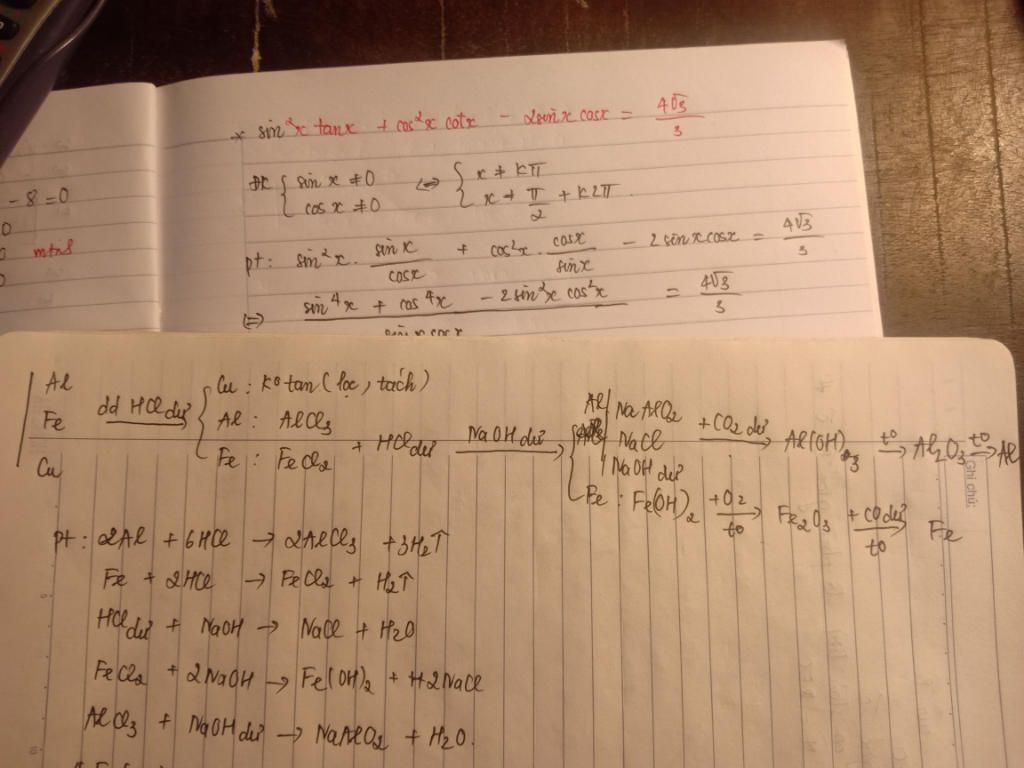 * sin²x tanx + cos²x cotx - 2sinx cosx = 4√3/3
- 8 = 0
0
ĐK { sin x ≠ 0 ⇔ { x ≠ kπ
cos x ≠ 0 x ≠ π/2 + k2π.
pt: sin²x . sin x/cosx + cos²x . cosx/sinx - 2 sinx cosx = 4√3/3
⇔ sin⁴x + cos⁴x - 2sin²x cos²x / sinx cosx = 4√3/3
Al
Fe
Cu
dd HCl dư
Cu : k° tan (lọc, tách)
Al : AlCl3
Fe : FeCl2
+ HCl dư
NaOH dư
Al
NaAlO2
NaCl
NaOH dư
+CO2 dư → Al(OH)3 t° → Al2O3 t° → Al
Fe : Fe(OH)2 +O2 t° → Fe2O3 + CO dư t° → Fe
Ghi chú:
pt : 2Al + 6HCl → 2AlCl3 + 3H2↑
Fe + 2HCl → FeCl2 + H2↑
HCl dư + NaOH → NaCl + H2O
FeCl2 + 2NaOH → Fe(OH)2 + H2NaCl
AlCl3 + NaOH dư → NaAlO2 + H2O.